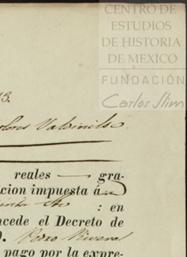 CENTRO DE
ESTUDIOS
DE HISTORIA
DE MEXICO
FUNDACIÓN
Carlos Slim
3.
reales gra-
cion impuesta á
: en
cede el Decreto de
D. Pedro
pago por la expre-